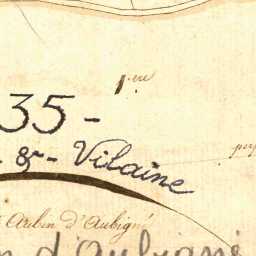 1.ere
35 -
- & - Vilaine
Aubin d'Aubigné
d'Aubigné